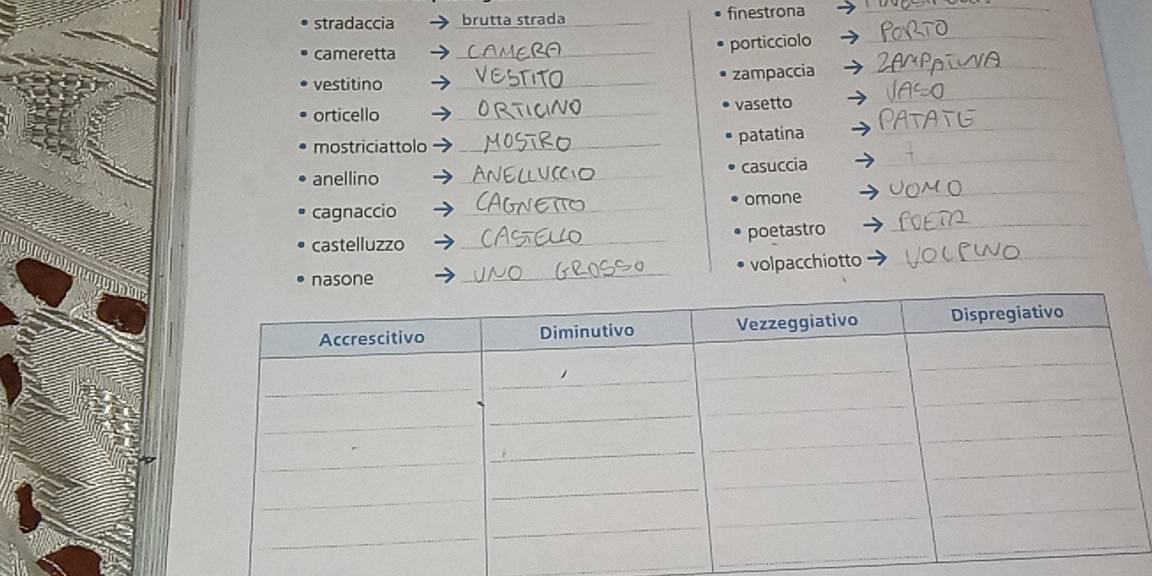 stradaccia → brutta strada
cameretta → CAMERA
vestitino → VESTITO
orticello → ORTICINO
mostriciattolo → MOSTRO
anellino → ANELLUCCIO
cagnaccio → CAGNETTO
castelluzzo → CASTELLO
nasone → UNO GROSSO
finestrona →
porticciolo → PORTO
zampaccia → ZAMPAINA
vasetto → VASO
patatina → PATATE
casuccia →
omone → UOMO
poetastro → POETA
volpacchiotto → VOLPINO
Accrescitivo Diminutivo Vezzeggiativo Dispregiativo